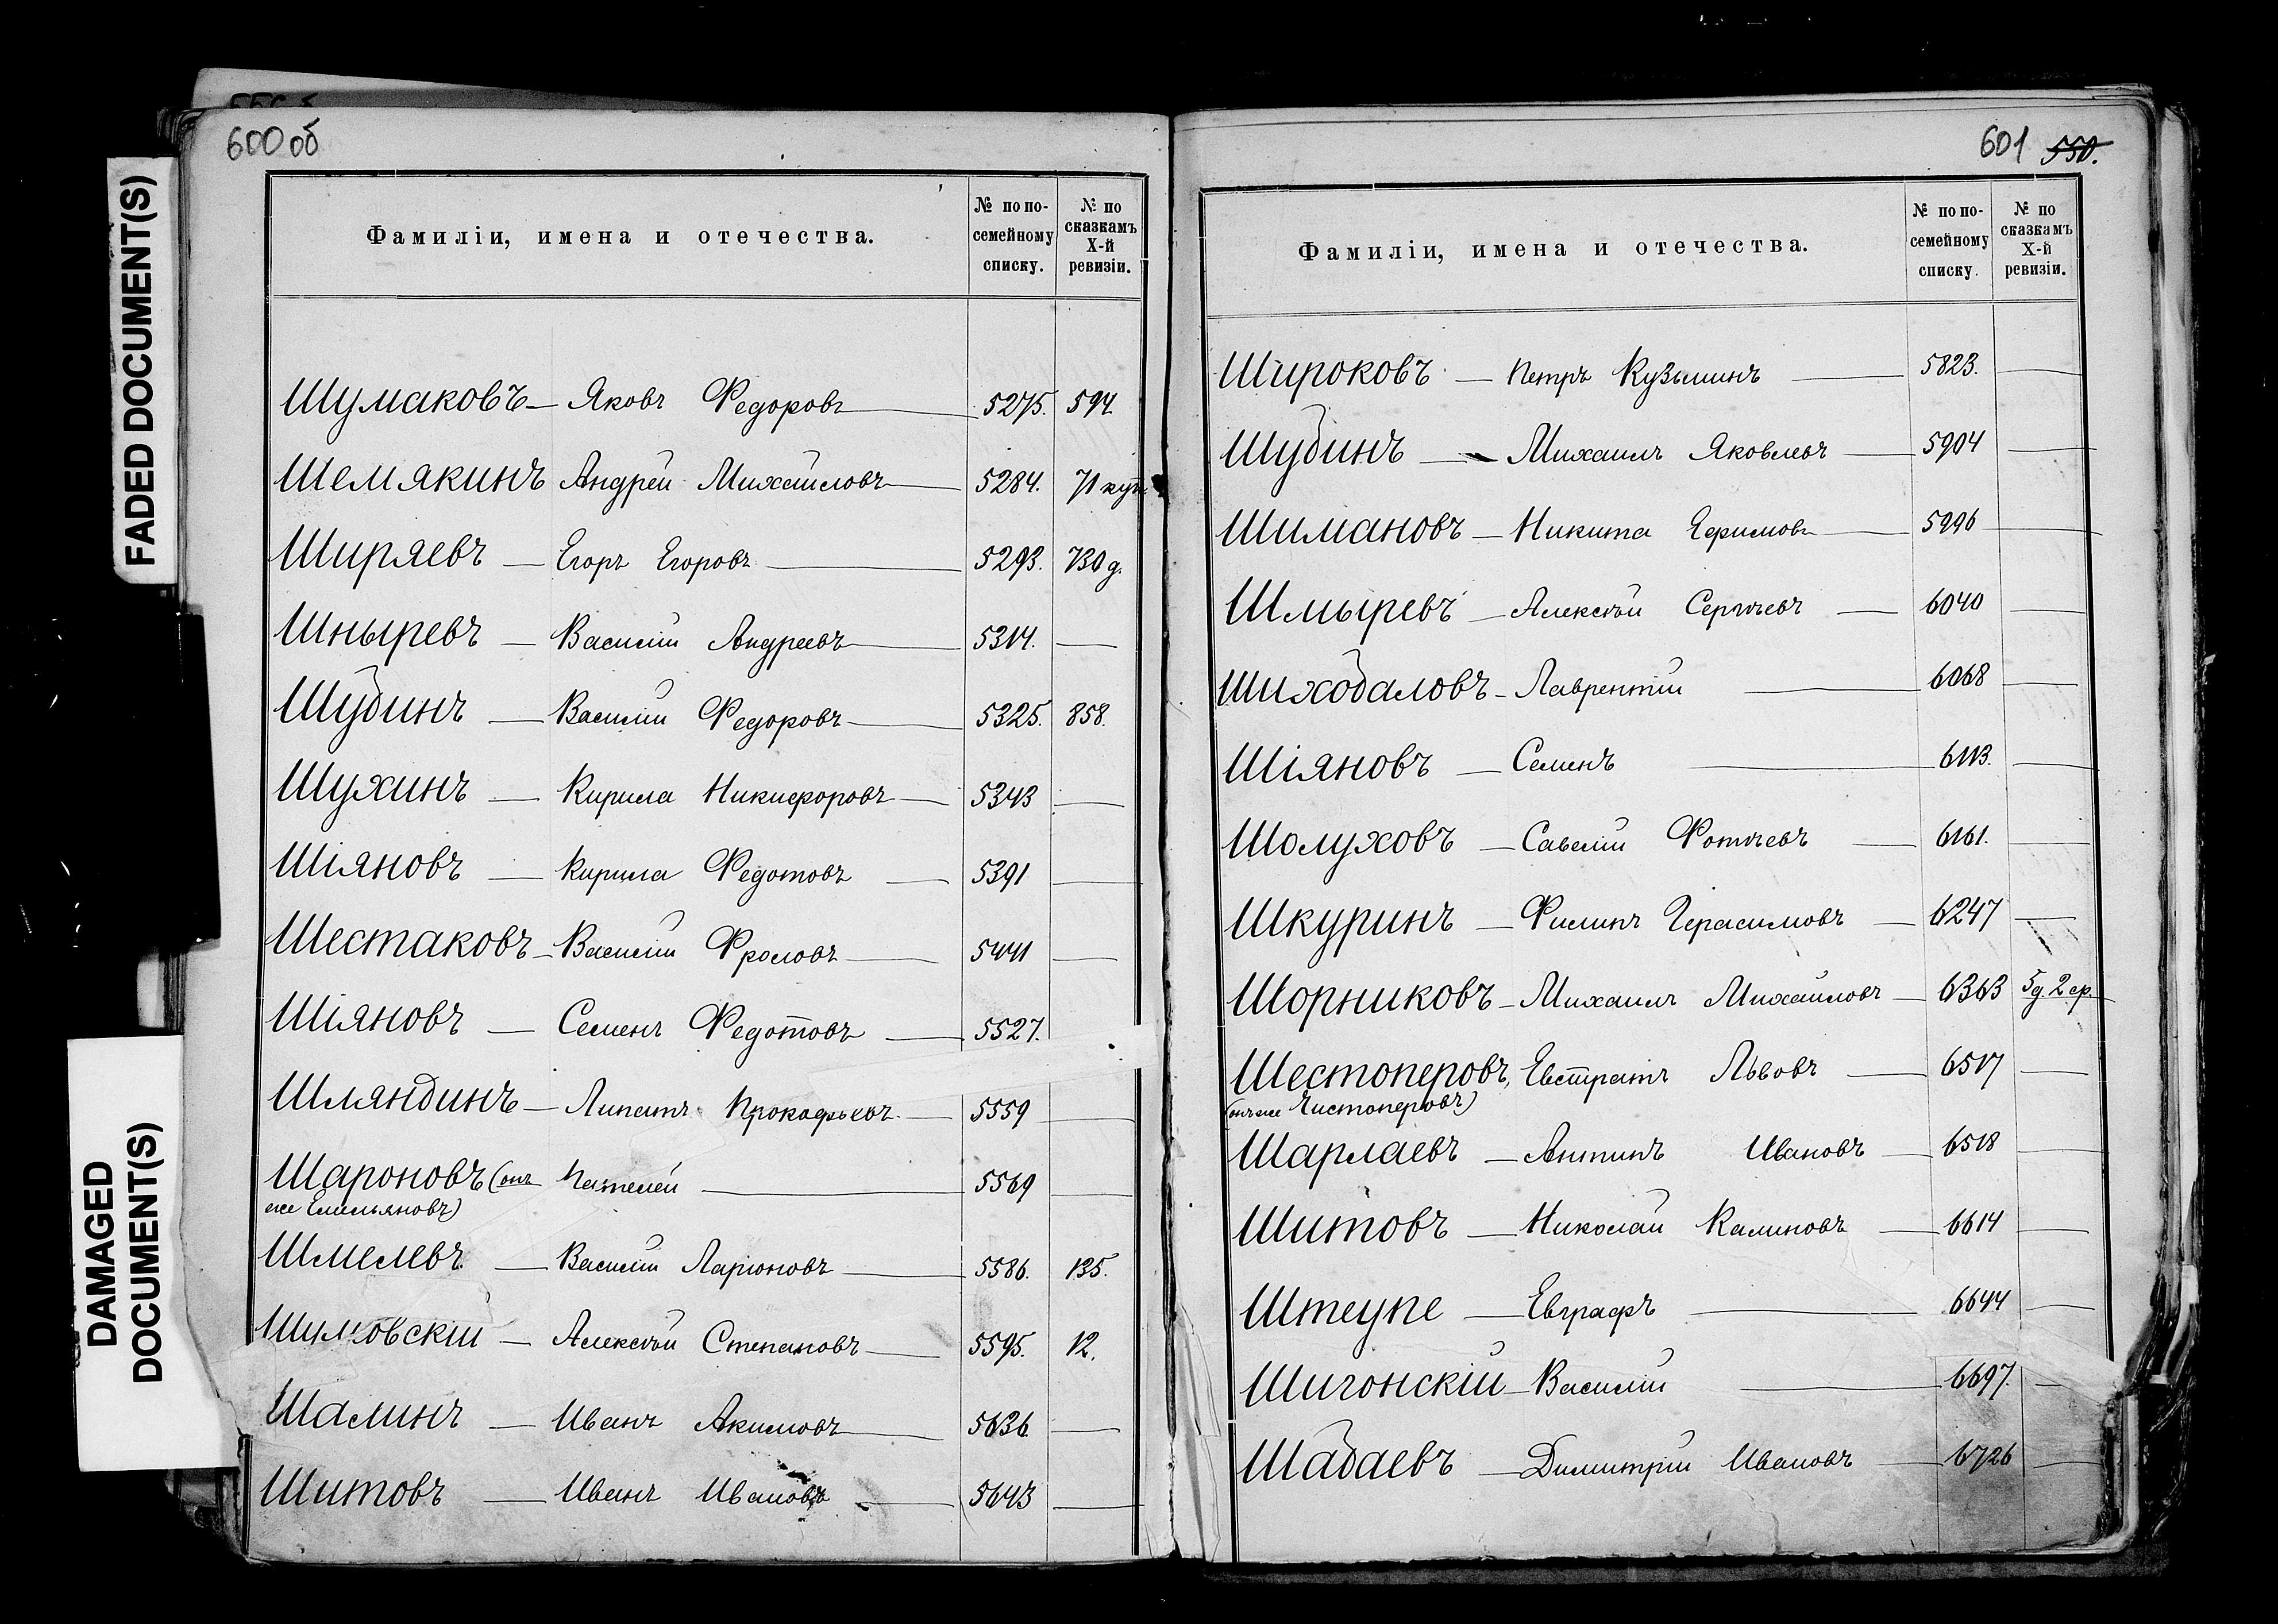 FADED DOCUMENT(S)
DAMAGED
DOCUMENT(S)
600 об
Фамиліи, имена и отечества.
№ по по-
семейному
списку.
№ по
сказкамъ
X-й
ревизіи.
Шумаковъ — Яковъ Федоровъ — 5275. 594.
Шемякинъ Андрей Михайловъ — 5284. 71 куп.
Ширяевъ — Егоръ Егоровъ — 5293. 730 д.
Шныревъ — Василій Андреевъ — 5314. —
Шубинъ — Василій Федоровъ — 5325. 858.
Шухинъ — Кирила Никифоровъ — 5343 —
Шіяновъ — Кирила Федотовъ — 5391 —
Шестаковъ — Василій Фроловъ — 5441 —
Шіяновъ — Семенъ Федотовъ — 5527.
Шляндинъ — Липатъ Прокофьевъ — 5559 —
Шароновъ (онъ Пателей — 5569 —
же Емельяновъ)
Шмелевъ — Василій Ларіоновъ — 5586. 135.
Алексѣй Степановъ — 5595. 12.
Шалинъ — Иванъ Акимовъ — 5636. —
Шитовъ — Иванъ Ивановъ — 5643 —
601 550.
Фамиліи, имена и отечества.
№ по по-
семейному
списку.
№ по
сказкамъ
X-й
ревизіи.
Широковъ — Петръ Кузьминъ — 5823. —
Шубинъ — Михаилъ Яковлевъ — 5904 —
Шимановъ — Никита Ефимовъ — 5996 —
Шмыревъ — Алексѣй Сергѣевъ — 6040 —
Шиходаловъ — Лаврентій — 6068 —
Шіяновъ — Семенъ — 6113. —
Шолуховъ — Савелій Фотѣевъ — 6161. —
Шкуринъ — Филипъ Герасимовъ — 6247 —
Шорниковъ — Михаилъ Михайловъ — 6363 5 д 2 ср.
Шестоперовъ, Евстратъ Львовъ — 6517 —
(онъ же Чистоперовъ)
Шарлаевъ — Антипъ Ивановъ — 6518 —
Шитовъ — Николай Калиновъ — 6614 —
Штеупе — Евграфъ — 6644 —
Шигонскій — Василій — 6697. —
Шабаевъ — Димитрій Ивановъ — 6726 —